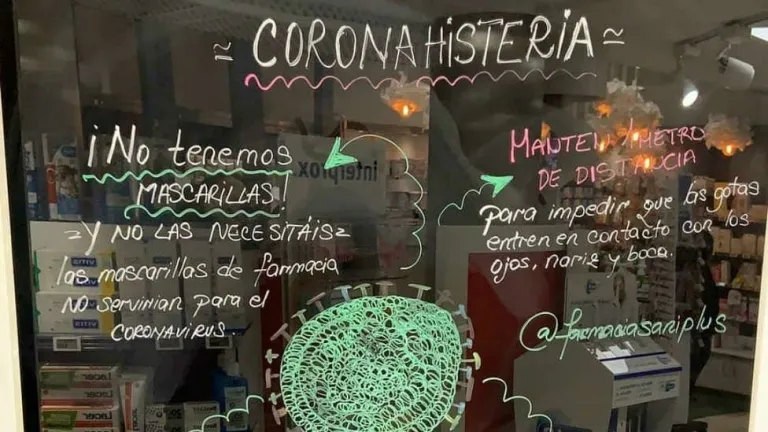 ≈ CORONAHISTERIA ≈
¡No tenemos
MASCARILLAS!
=Y NO LAS NECESITÁIS=
las mascarillas de farmacia
NO servirian para el
CORONAVIRUS...
MANTEN 1 METRO
DE DISTANCIA
para impedir que las gotas
entren en contacto con los
ojos, nariz y boca.
@farmaciasaniplus
interprox
VITIS
VITIS
VITIS
Lacer
Lacer
Lacer